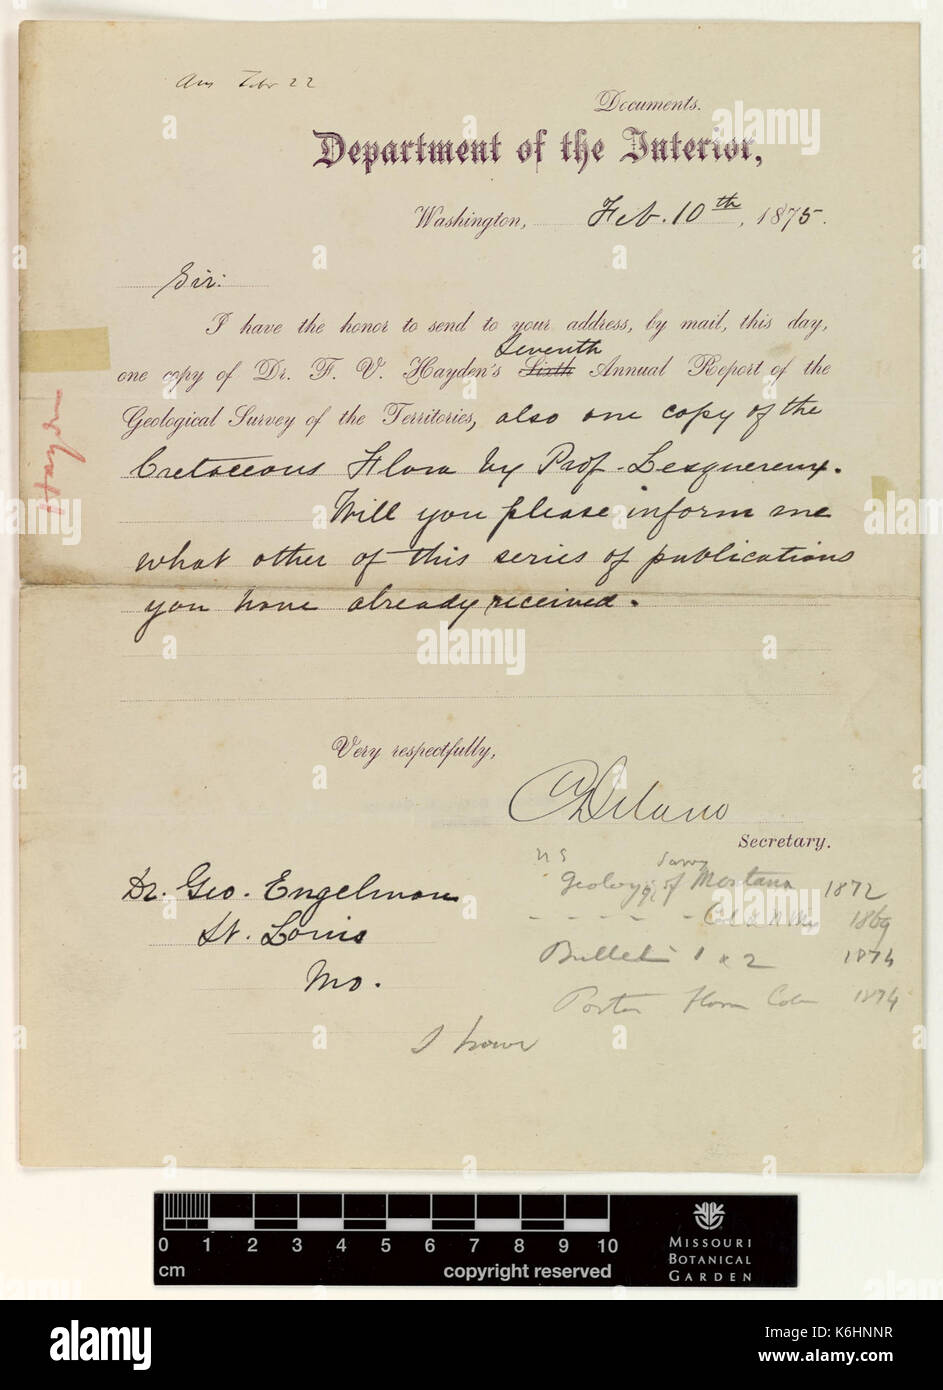 Ans Febr 22
Documents.
Department of the Interior,
Washington, Feb. 10th, 1875.
Sir:
I have the honor to send to your address, by mail, this day,
Seventh
one copy of Dr. F. V. Hayden's Sixth Annual Report of the
Geological Survey of the Territories, also one copy of the
Cretaceous Flora by Prof. Lesquereux.
Will you please inform me
what other of this series of publications
you have already received.
Very respectfully,
C Delano
Secretary.
Dr. Geo. Engelman
St. Louis
Mo.
Hayden
U S Surv
Geologi of Montana 1872
1869
Bulletin 1 & 2 1874
Porter Flora Colo 1874
I have
0 1 2 3 4 5 6 7 8 9 10
cm
copyright reserved
MISSOURI
BOTANICAL
GARDEN
alamy
a
alamy
Image ID: K6HNNR
www.alamy.com